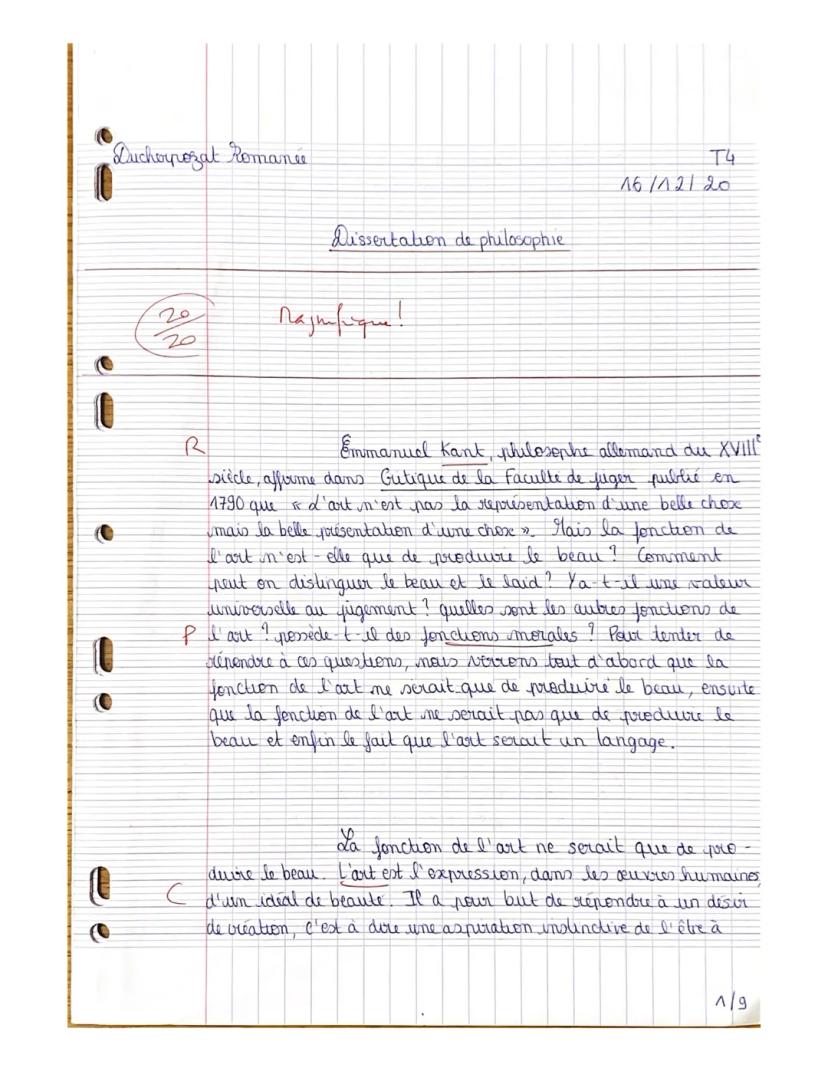 Ducherpozat Romanée
T4
16/12/20
Dissertation de philosophie
20/20
Magnifique !
R
Emmanuel Kant, philosophe allemand du XVIIIe
siècle, affirme dans Critique de la Faculté de juger publié en
1790 que « L'art n'est pas la représentation d'une belle chose
mais la belle présentation d'une chose ». Mais la fonction de
l'art n'est-elle que de produire le beau ? Comment
peut on distinguer le beau et le laid ? Y a-t-il une valeur
universelle au jugement ? quelles sont les autres fonctions de
P l'art ? possède-t-il des fonctions morales ? Pour tenter de
répondre à ces questions, nous verrons tout d'abord que la
fonction de l'art ne serait que de produire le beau, ensuite
que la fonction de l'art ne serait pas que de produire le
beau et enfin le fait que l'art serait un langage.
La fonction de l'art ne serait que de pro-
duire le beau. L'art est l'expression, dans les œuvres humaines,
C d'un idéal de beauté. Il a pour but de répondre à un désir
de création, c'est à dire une aspiration instinctive de l'être à
1/9